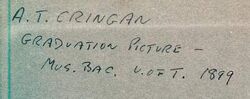 A. T. CRINGAN
GRADUATION PICTURE –
MUS. BAC. U. OF T. 1899